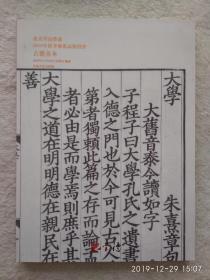 古籍善本
大學 朱熹章句
大舊音泰今讀如字
子程子曰大學孔氏之遺書
入德之門也於今可見古人
第者獨賴此篇之存而論
者必由是而學焉則庶乎其
大學之道在明明德在親民在
善
2019-12-29 15:07